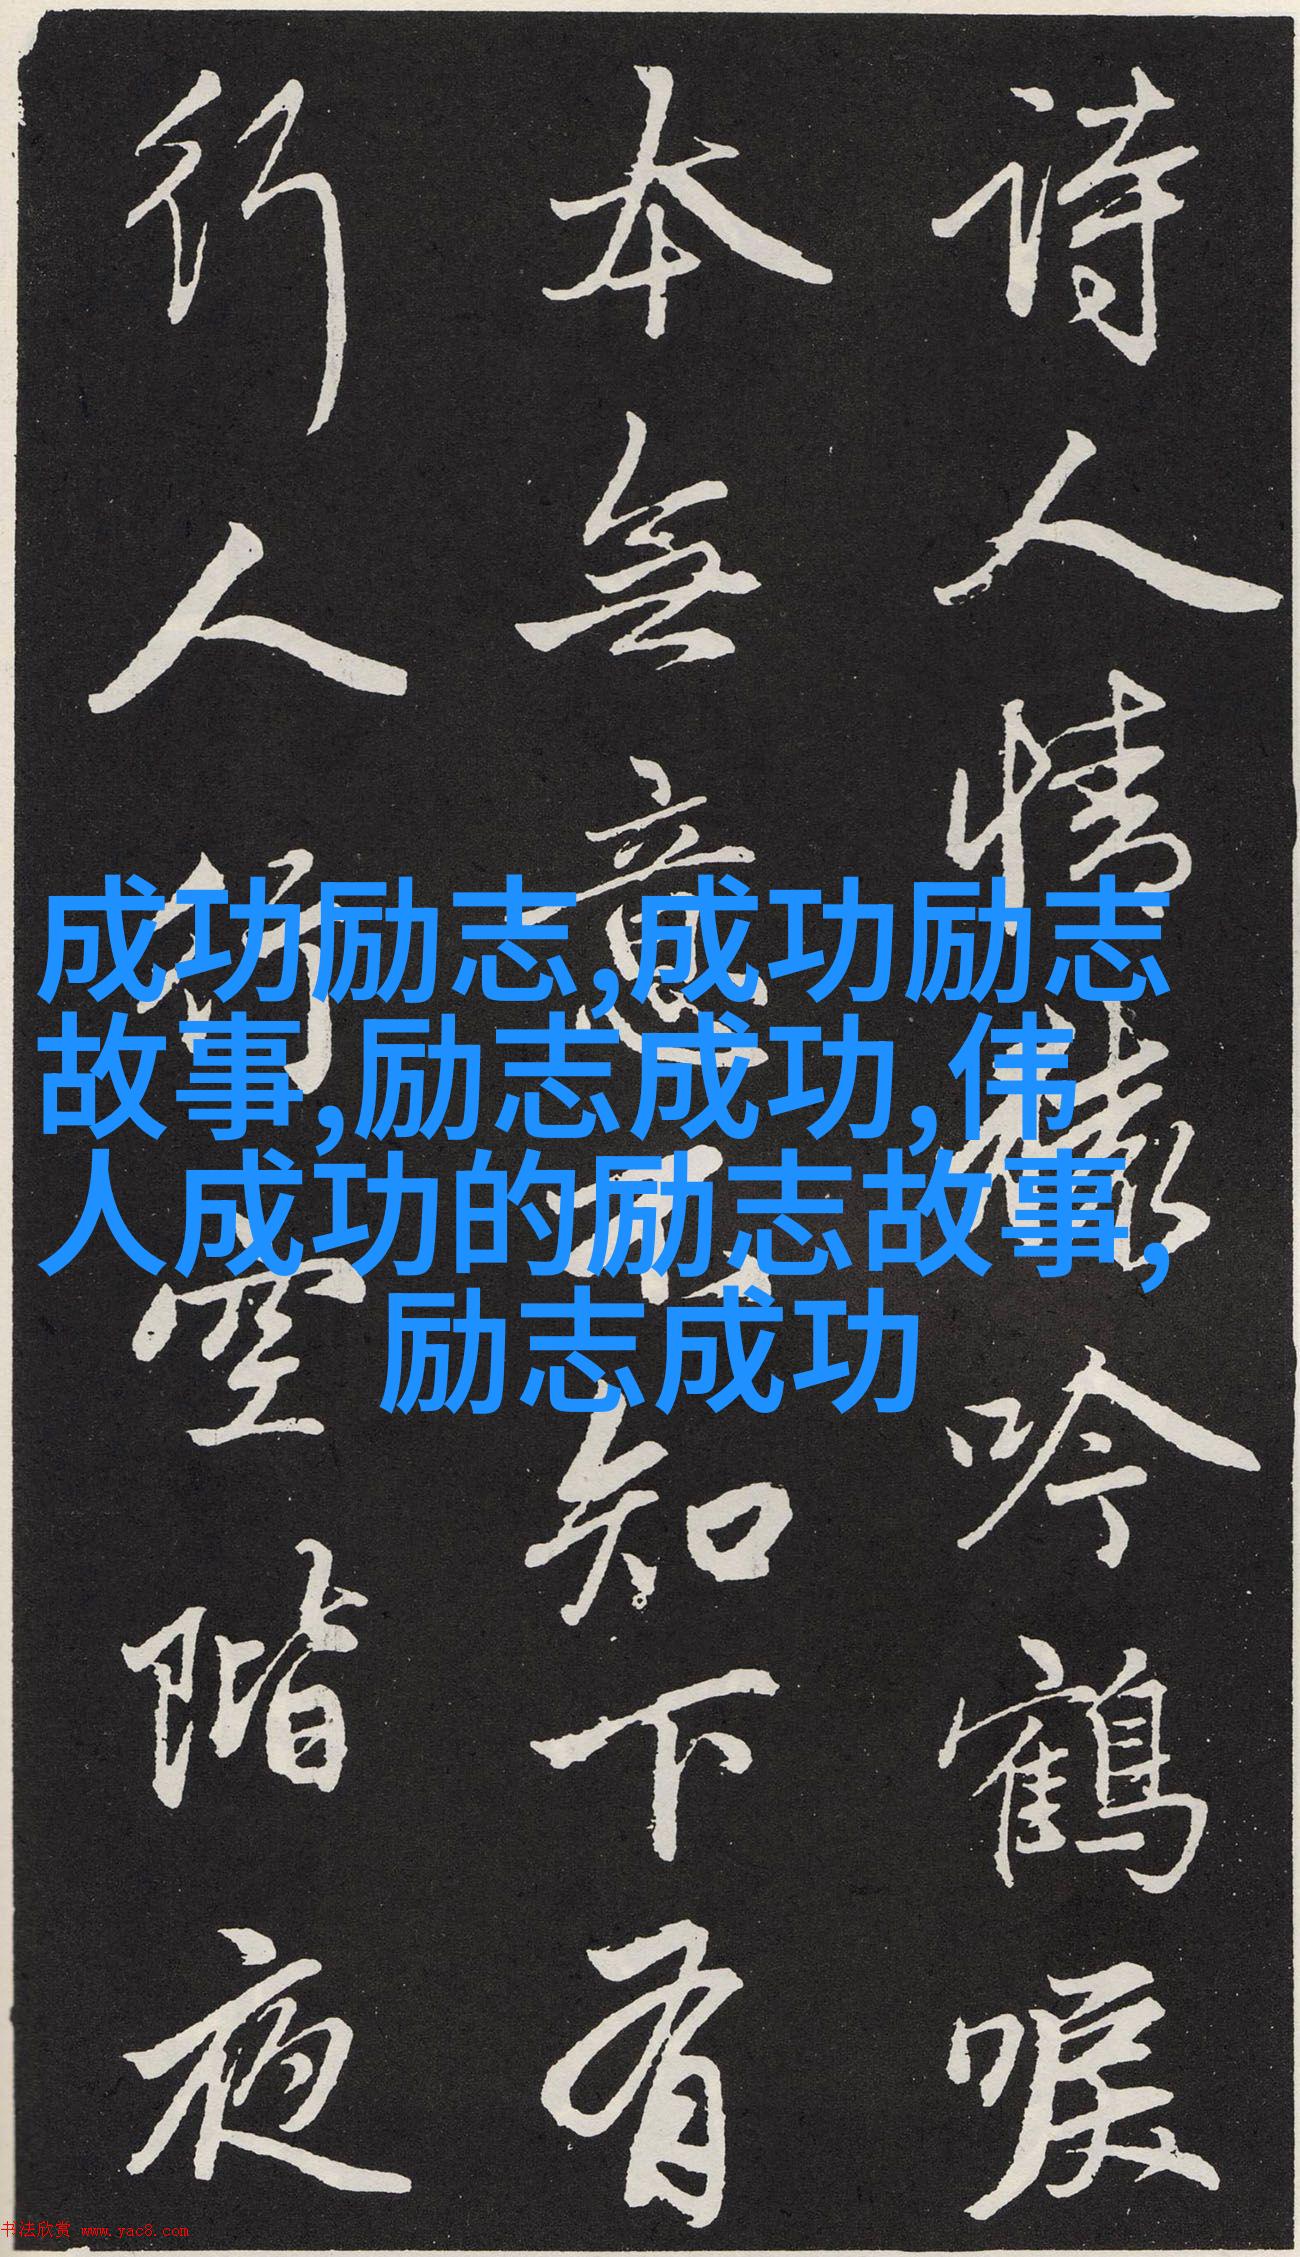 詩人情猿吟鶴唳
本無意不知下有
行人行空階夜
成功励志,成功励志
故事,励志成功,伟
人成功的励志故事,
励志成功
书法欣赏 www.yac8.com